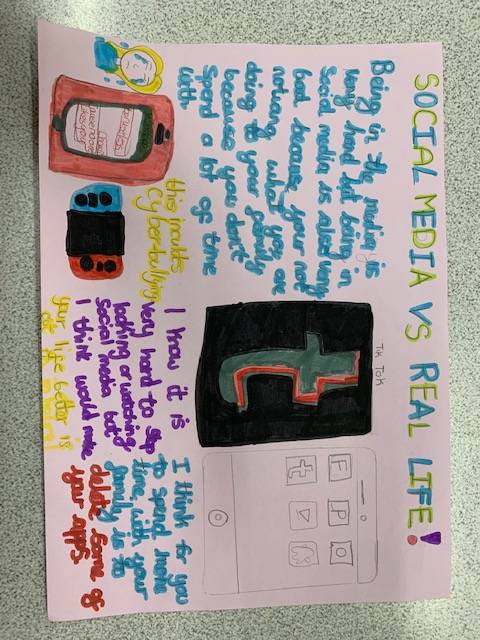 SOCIAL MEDIA VS REAL LIFE!
Being in the media is
very hard but being in
Social media is also very
bad because your not
what you are
doing to your family
because you don't
Spend a lot of time
with.
this
Cyberbullying
Tik Tok
I know it is
very hard to stop
looking or watching
Social media but
I think would make
your life better is
I think for you
to spend more
time with your
family is to
delete some of
your apps
F P O
t